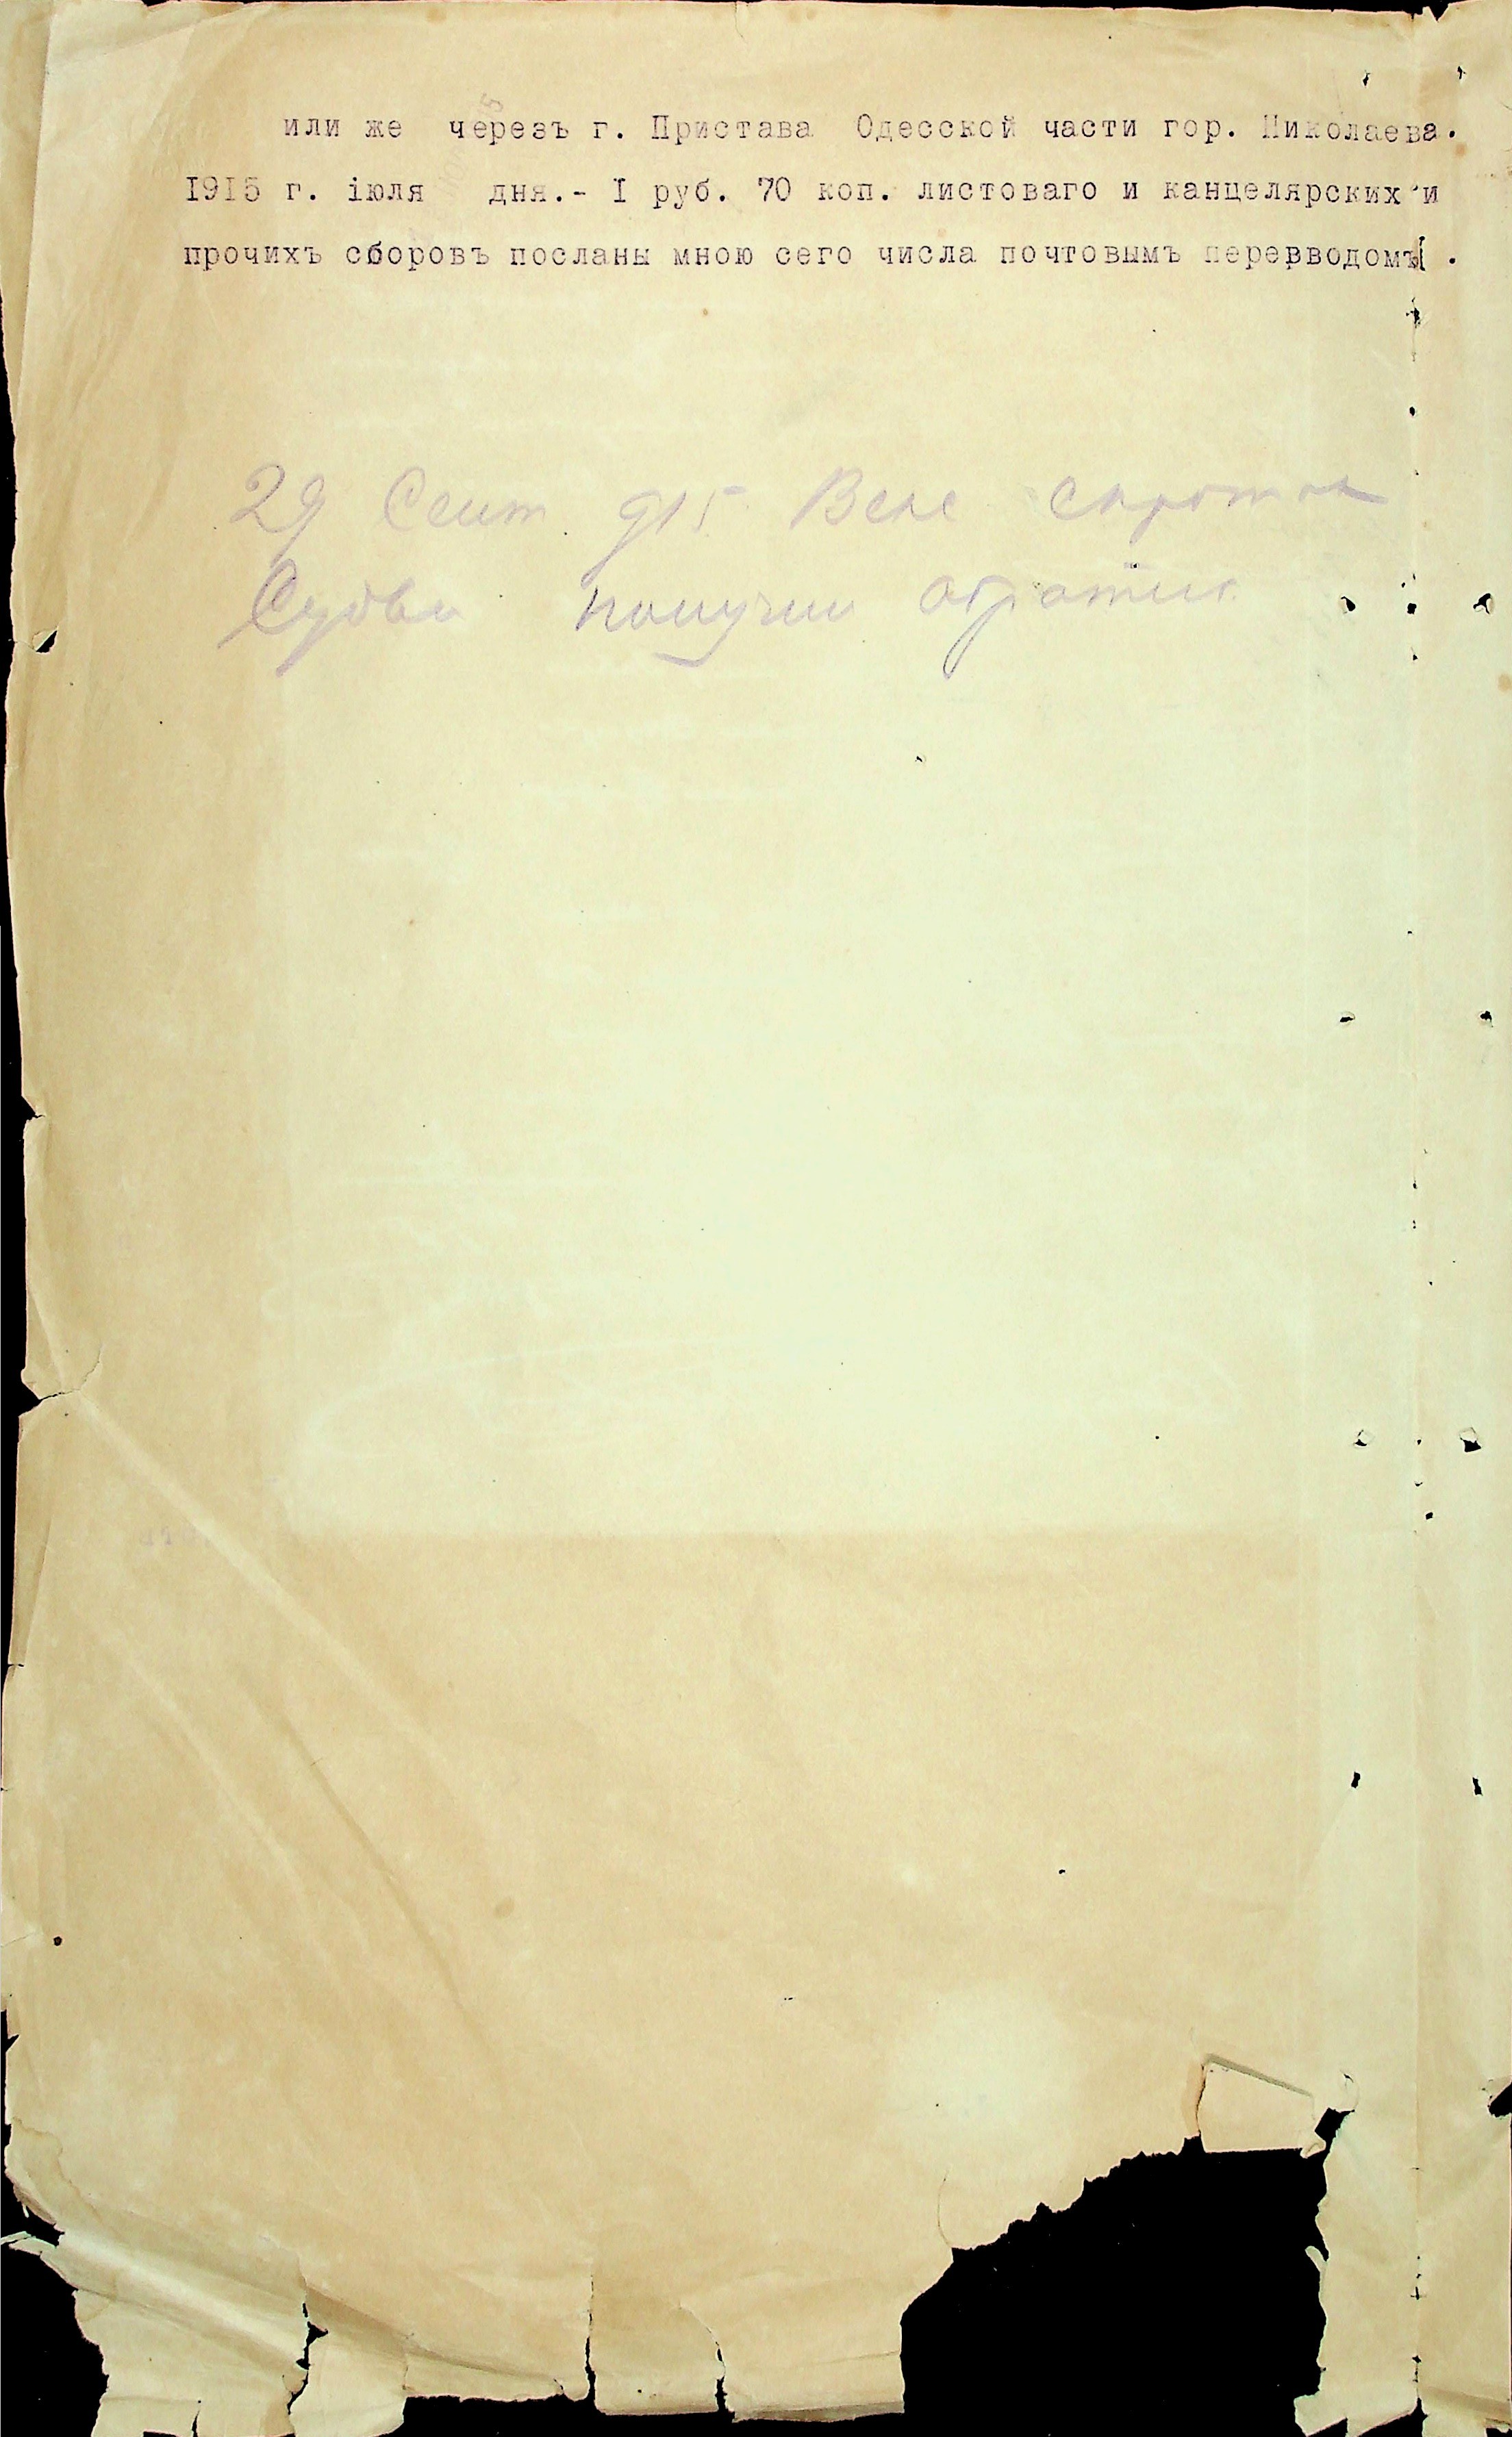 или же через г. Пристава Одесской части гор. Николаева.
1915 г. іюля дня.- I руб. 70 коп. листоваго и канцелярских и
прочихъ сборовъ посланы мною сего числа почтовымъ перевводомъ .
29 Сент 915
получил